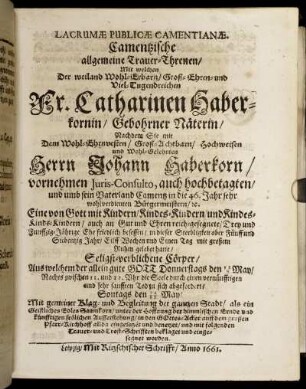 LACRUMÆ PUBLICÆ CAMENTIANÆ.
Camentzische
allgemeine Trauer-Threnen/
Mit welchen
Der weiland Wohl-Erbarn/ Groß-Ehren- und
Viel-Tugendreichen
Fr. Catharinen Haber-
kornin/ Gebohrner Näterin/
Nachdem Sie mit
Dem Wohl-Ehrnvesten/ Groß-Achtbarn/ Hochweisen
und Wohl-Gelehrten
Herrn Johann Haberkorn/
vornehmen Juris-Consulto, auch hochbetagten/
und umb sein Vaterland Camentz in die 46. Jahr sehr
wohlverdienten Bürgermeistern/ ꝛc.
Eine von Gott mit Kindern/ Kindes-Kindern und Kindes-
Kinds-Kindern/ auch an Gut und Ehren reichgesegnete/ Drey und
Funfzig-Jährige Ehe friedlich besessen/ in dieser Sterbligkeit aber Fünff und
Siebentzig Jahr Eilff Wochen und Einen Tag mit großem
Ruhm gelebet hatte/
Seligst-verblichene Cörper/
Aus welchem der allein gute GOTT Donnerstags den May/
Nachts zwischen 11. und 12. Uhr die Seele durch einen vernünfftigen
und sehr sanfften Tod zu sich abgefodert/
Sontags den May/
Mit gemeiner Klag- und Begleitung der gantzen Stadt/ als ein
der allhier eingesencket und
Trauer- und Trost-Schrifften beklaget und einge-
segnet worden.
Leipzig/ Mit Ritzschischer Schrifft/ Anno 1661.